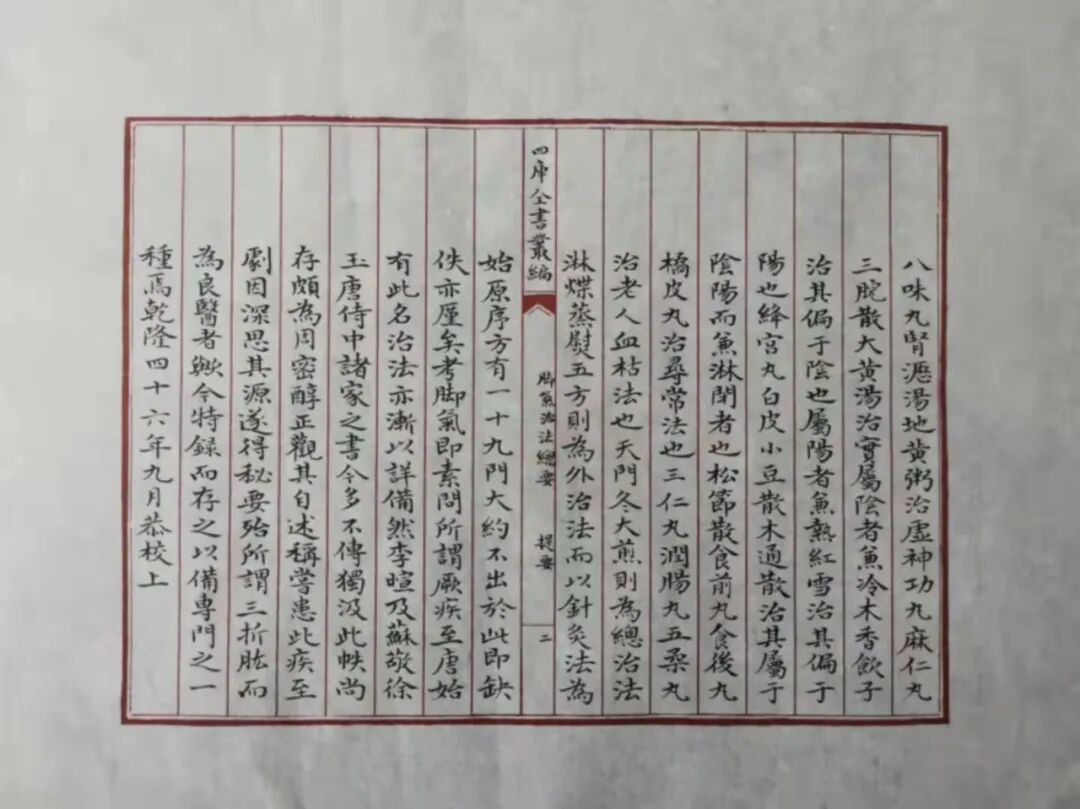 八味丸腎瀝湯地黄粥治虛神功丸麻仁丸
三脘散大黄湯治實屬陰者兼冷木香飲子
治其偏于陰也屬陽者兼熱紅雪治其偏于
陽也絳宮丸白皮小豆散木通散治其屬于
陰陽而兼淋閉者也松節散食前丸食後丸
橘皮丸治尋常法也三仁丸潤腸丸五柔丸
治老人血枯法也天門冬大煎則為總治法
淋煠蒸熨五方則為外治法而以針灸法為
四庫全書叢編
脚氣治法總要
提要
二
始原序方有一十九門大約不出於此即缺
佚亦厪矣考脚氣即素問所謂厥疾至唐始
有此名治法亦漸以詳備然李暄及蘇敬徐
玉唐侍中諸家之書今多不傳獨汲此帙尚
存頗為周密醇正觀其自述稱嘗患此疾至
劇因深思其源遂得秘要殆所謂三折肱而
為良醫者歟今特録而存之以備專門之一
種焉乾隆四十六年九月恭校上